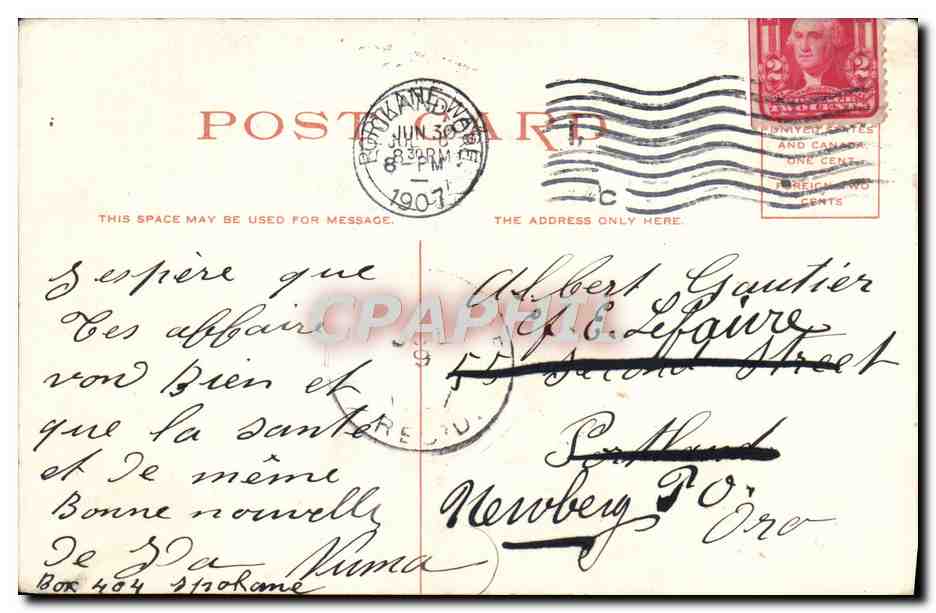 POST CARD
SPOKANE, WASH.
JUN 30
830 PM
8 - PM
1907
C
2
TWO CENTS
UNITED STATES
AND CANADA
ONE CENT
FOREIGN TWO
CENTS
THIS SPACE MAY BE USED FOR MESSAGE.
THE ADDRESS ONLY HERE.
J espère que
Tes affaire
von Bien et
que la santé
et de même
Bonne nouvelle
de Numa
Box 404 Spokane
CPAPHIL
9
REC'D.
Albert Gautier
c/ E. Lefaivre
55 Second Street
Portland
Newberg P O.
Oro